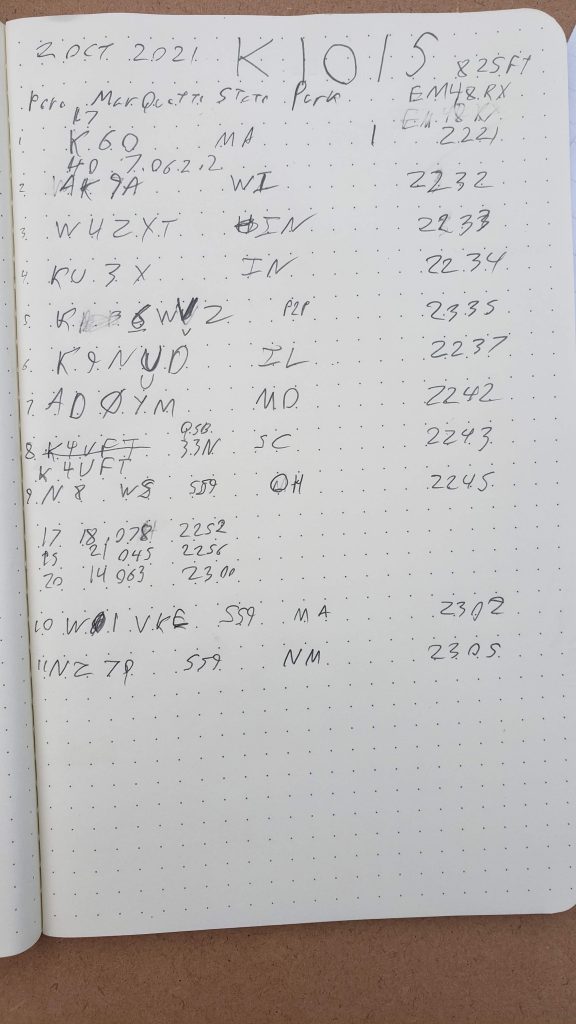 2 OCT 2021 K1015 825FT
Pere MarQuette State Park EM48RX
17
1 K6O MA 1 2221
40 7.062.2
2. AK9A WI 2232
3. W4ZXT IN 2233
4. KU3X IN 2234
5. K 6WVZ P2P 2335
6. K9NUD IL 2237
U
7. ADØYM MD 2242
QSB
8. K4UFT 33N SC 2243
K4UFT
9. N8 WS 559 OH 2245
17 18.078 2252
15 21 045 2256
20 14 063 2300
10 W1VKE 559 MA 2302
11 NZ7P 559 NM 2305